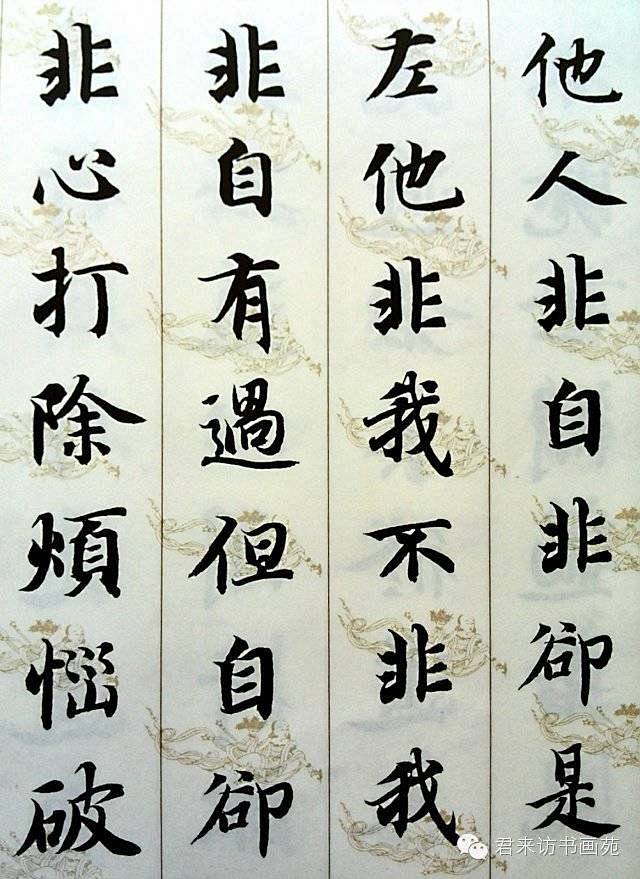 他人非自非卻是
左他非我不非我
非自有過但自卻
非心打除煩惱破
君来访书画苑